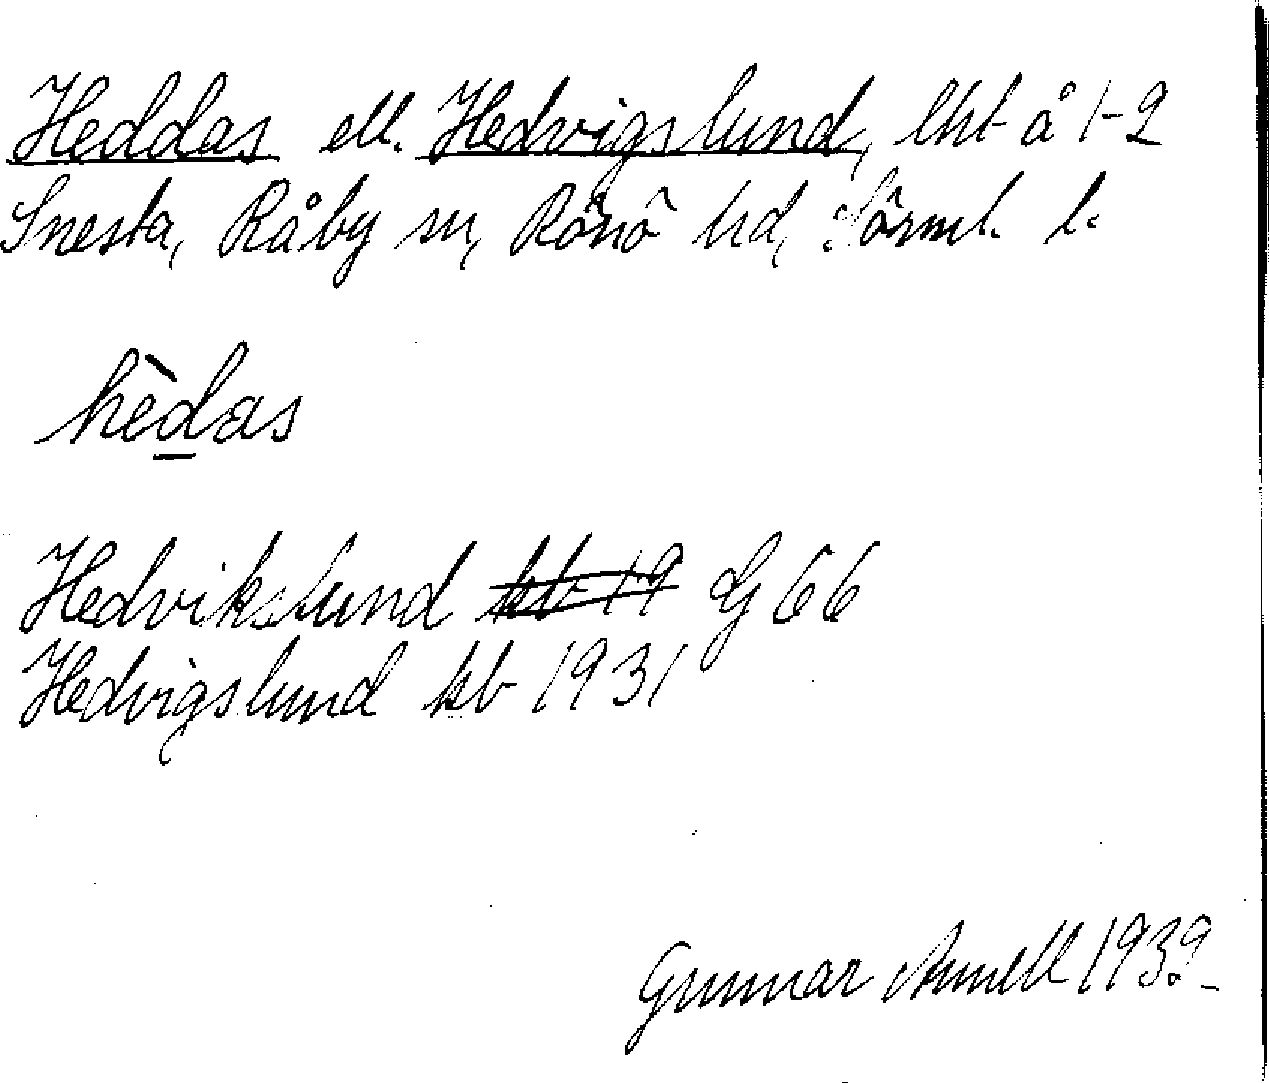 Heddas ell. Hedvigslund, lht å 1-2
Snesta, Råby sn, Rönö hd, Sörml. l.
hèdas
Hedvikslund kb 19 Gf 66
Hedvigslund kb 1931
Gunnar Arnell 1939